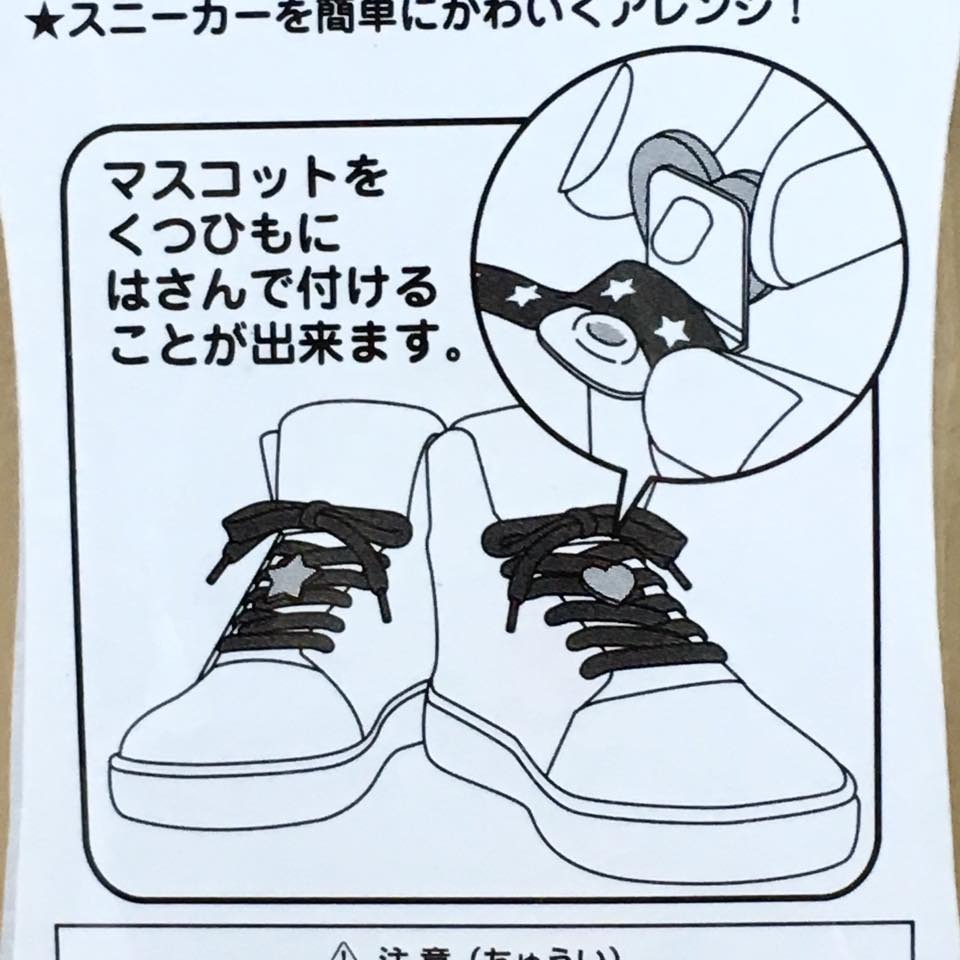 ★スニーカーを簡単にかわいくアレンジ！
マスコットを
くつひもに
はさんで付ける
ことが出来ます。
⚠ 注意（ちゅうい）